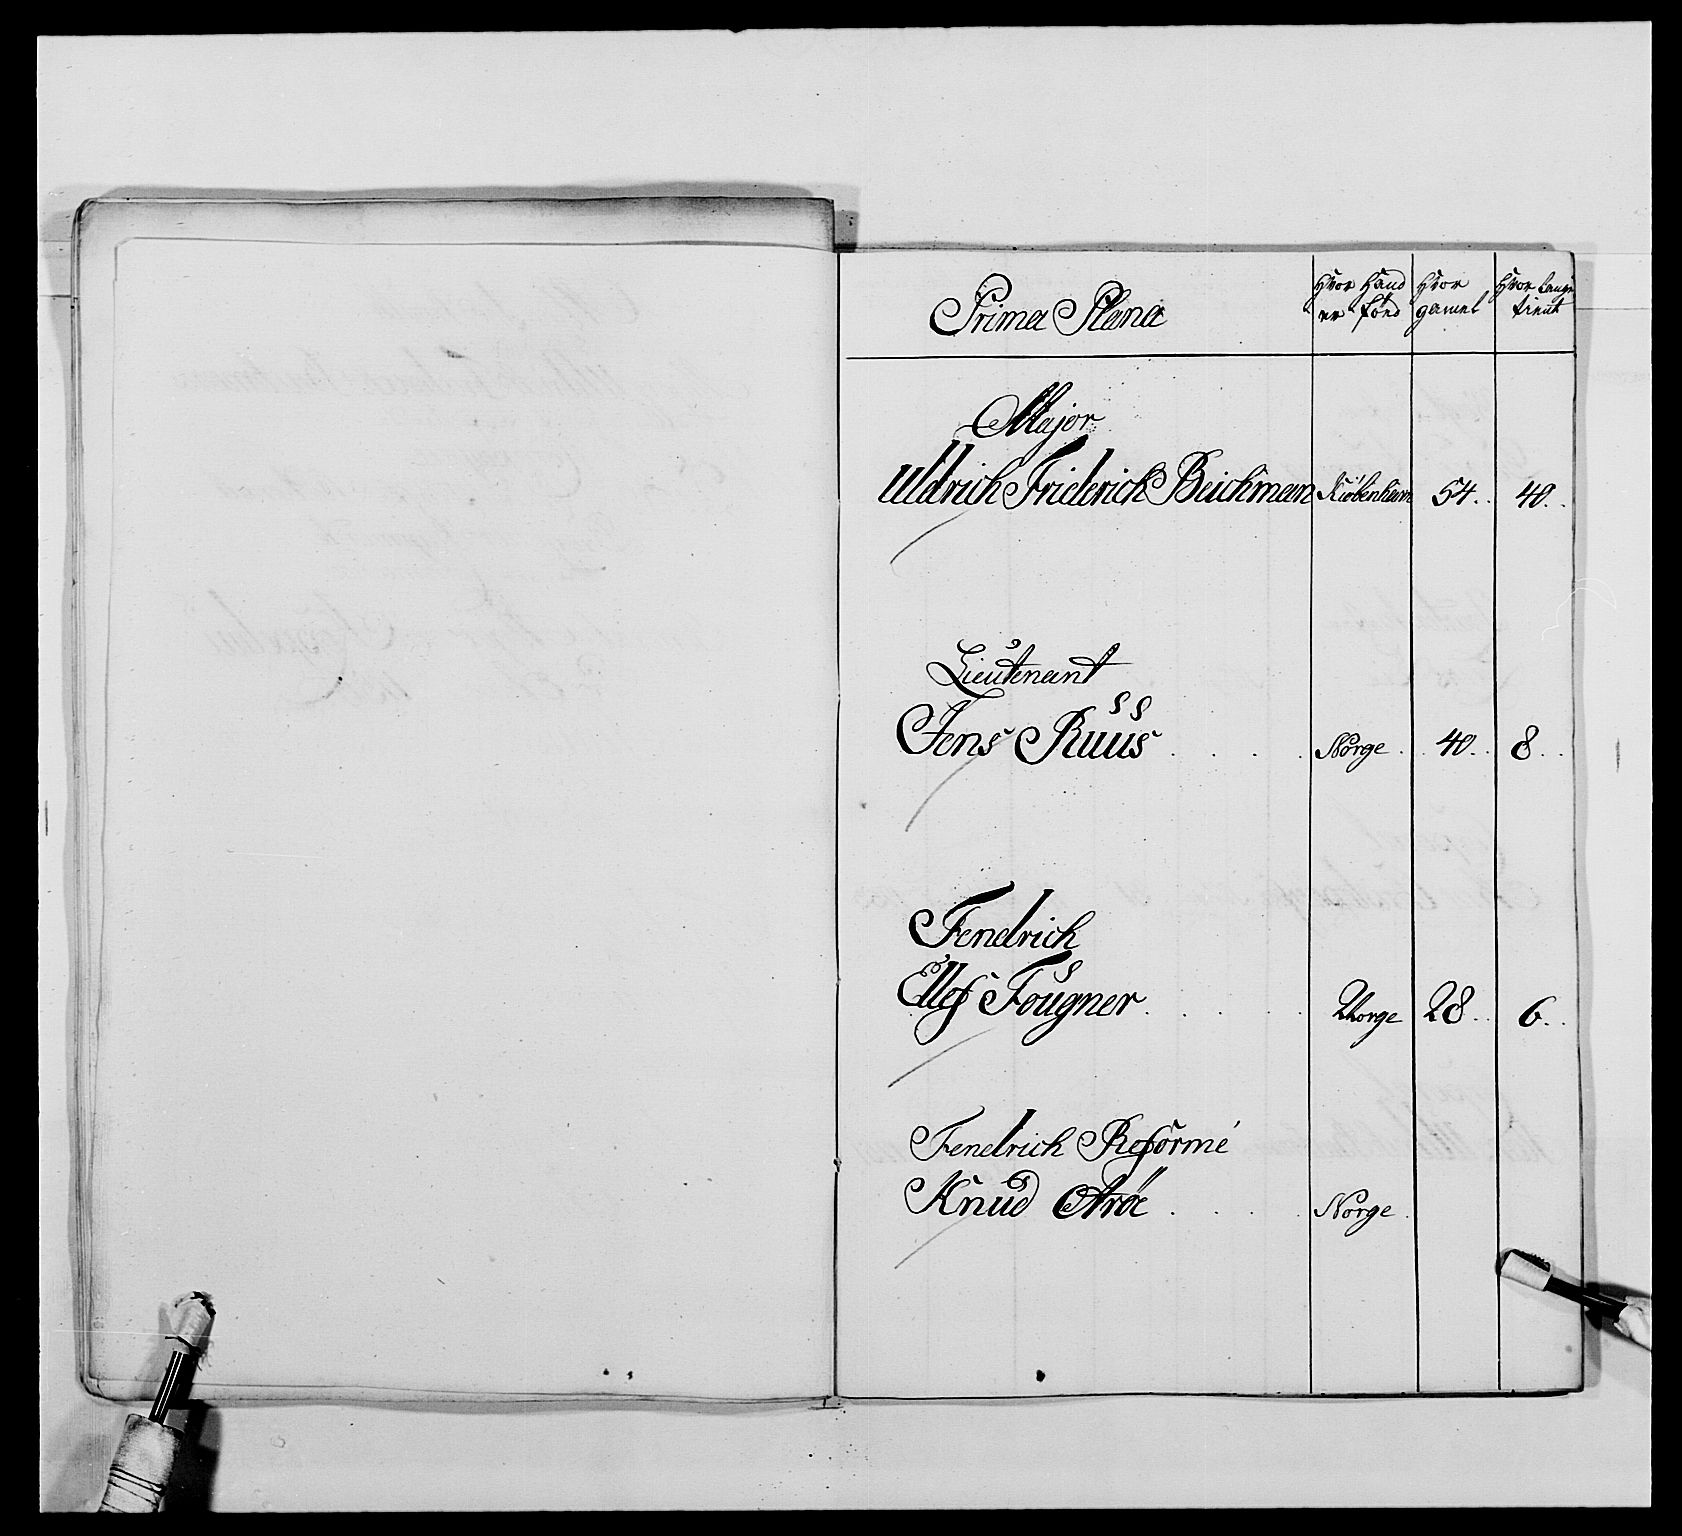 Prima Plana | Hvor Hand er fönd | Hvor gamel | Hvor Lange tient
Major
Uldrich Friderich Beichman | Kiøbenhavn | 54. | 40.
Lieütenant
Jens Rüüs | Norge | 40. | 8.
Fendrich
Ellef Foügner | Norge | 28. | 6.
Fendrich Reformé
Knüd Aröe | Norge